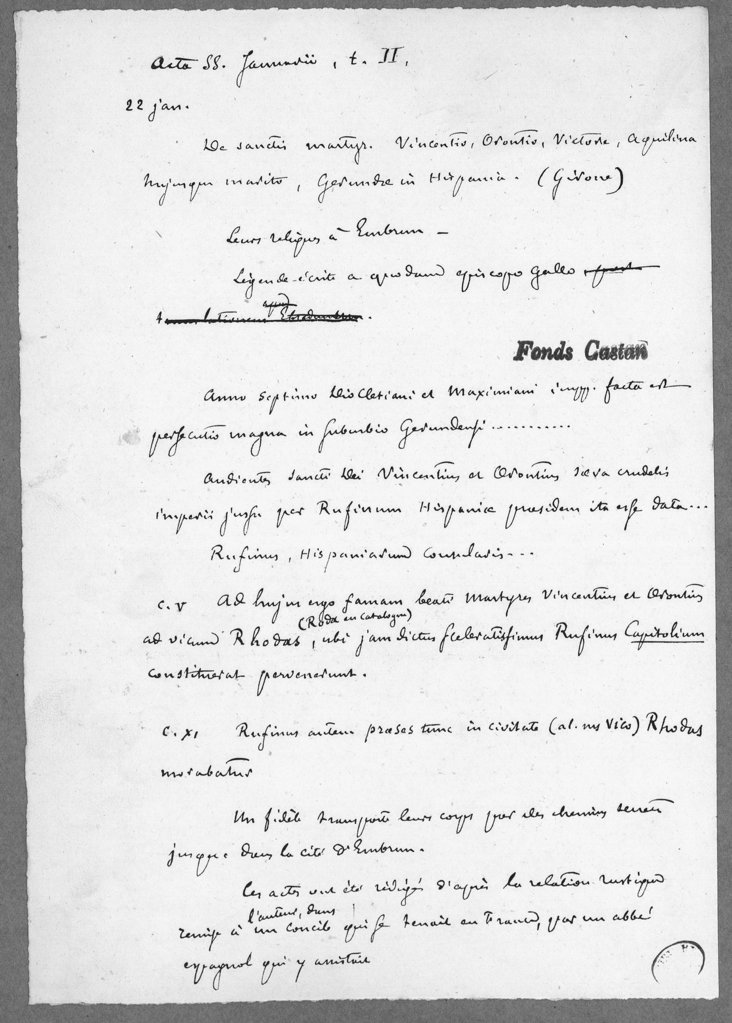 Acta SS. Januarii, t. II,
22 jan.
De sanctis martyr. Vincentio, Orontio, Victore, Aquilina
hujusque marito, Gerundæ in Hispania. (Girone)
Leurs reliques à Embrun –
Légende écrite a quodam episcopo Gallo
Fonds Castan
Anno septimo Diocletiani et Maximiani impp. facta est
persecutio magna in suburbio Gerundensi ...........
Audientes sancti Dei Vincentius et Orontius sæva crudelis
imperii jussa per Rufinum Hispaniæ præsidem ita esse data...
Rufinus, Hispaniarum consularis...
C. V Ad hujus ergo famam beati Martyres Vincentius et Orontius
(Roda en Catalogne)
ad vicum Rhodas, ubi jam dictus sceleratissimus Rufinus Capitolium
constituerat pervenerunt.
C. XI Rufinus autem præses tunc in civitate (al. ms vico) Rhodas
morabatur
Un fidèle transporte leurs corps par des chemins secrets
jusque dans la cité d'Embrun.
Ces actes ont été rédigés d'après la relation rustique
l'auteur, dans
remise à un concile qui se tenait en France, par un abbé
espagnol qui y assistait